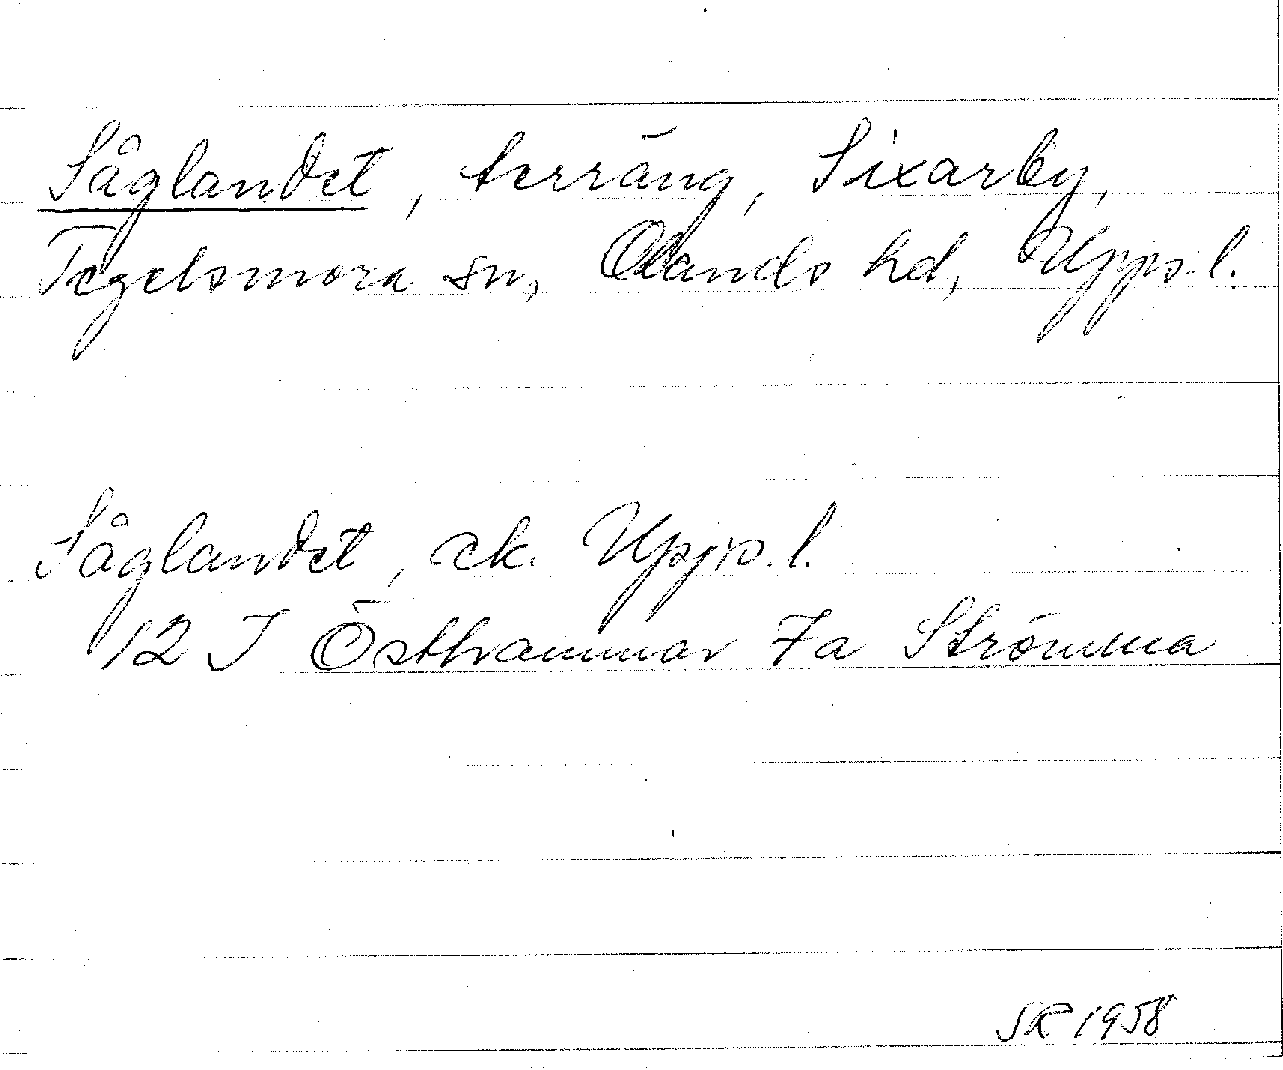 Såglandet, terräng, Sixarby,
Tegelsmora sn, Olands hd, Uppl.
Såglandet, ek. Uppl.
12 I Östhammar 7a Strömma
SR 1958